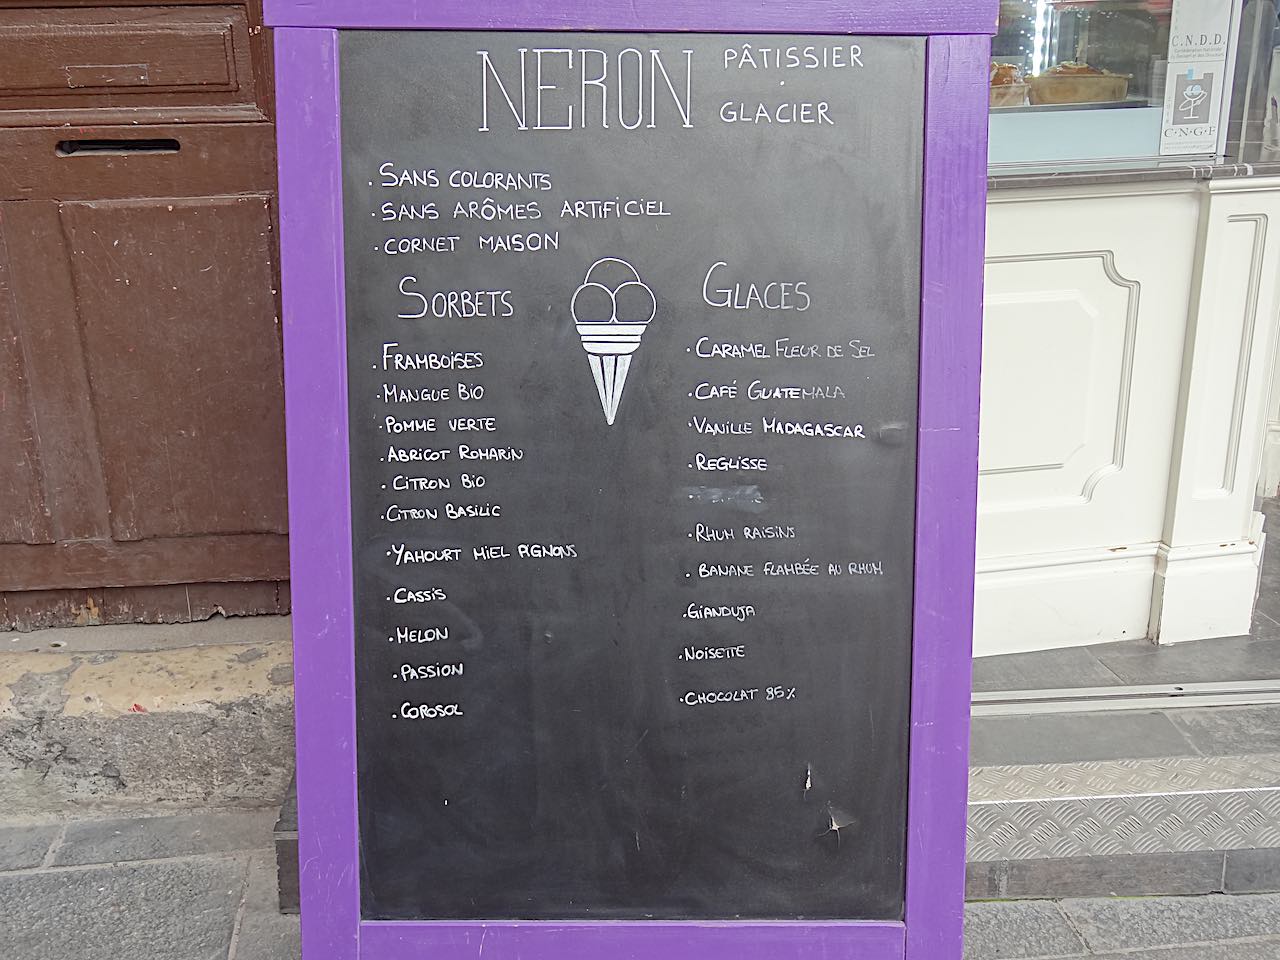 NERON
PÂTISSIER
.
GLACIER
. SANS COLORANTS
. SANS ARÔMES ARTIFICIEL
. CORNET MAISON
SORBETS
. FRAMBOISES
. MANGUE BIO
. POMME VERTE
. ABRICOT ROMARIN
. CITRON BIO
. CITRON BASILIC
. YAHOURT MIEL PIGNONS
. CASSIS
. MELON
. PASSION
. COROSOL
GLACES
. CARAMEL FLEUR DE SEL
. CAFÉ GUATEMALA
. VANILLE MADAGASCAR
. REGLISSE
. RHUM RAISINS
. BANANE FLAMBÉE AU RHUM
. GIANDUJA
. NOISETTE
. CHOCOLAT 85%
C.N.D.D.
C·N·G·F